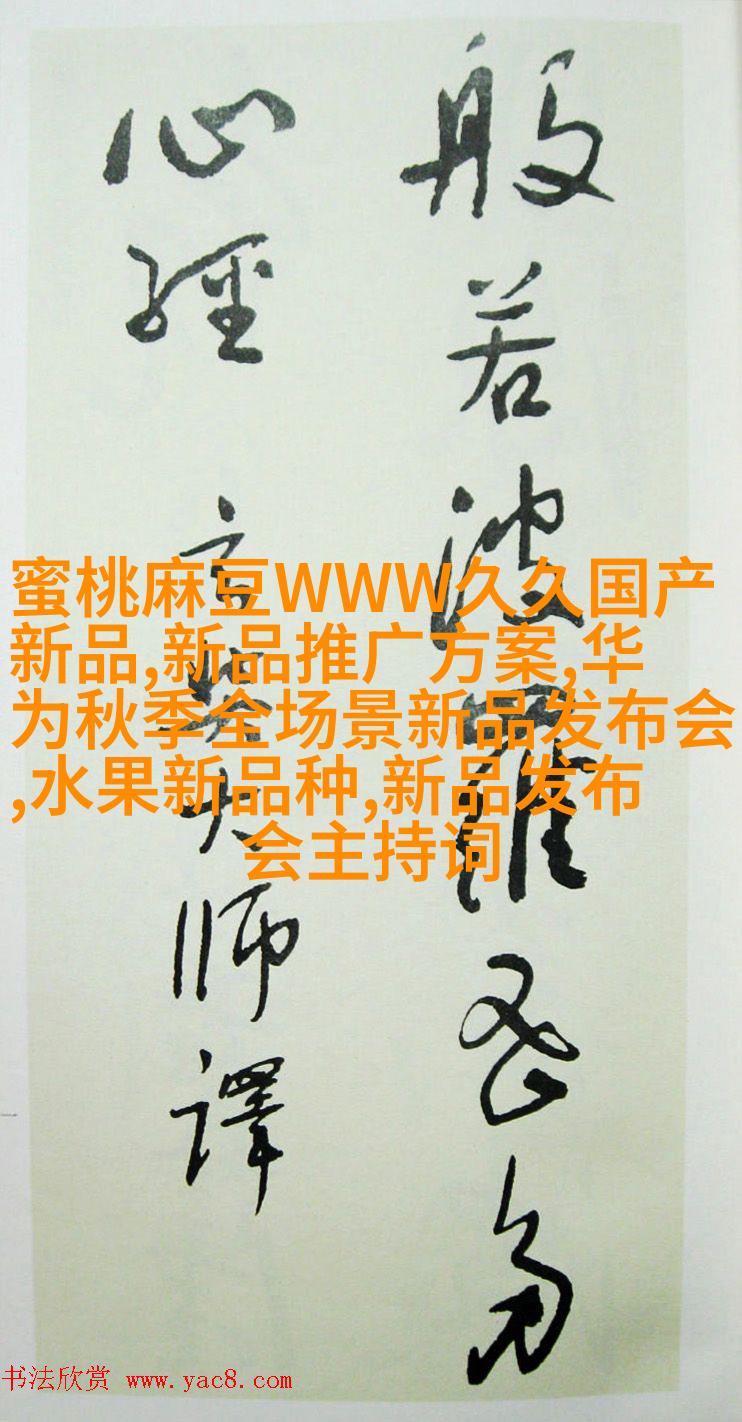 般若波羅蜜多
心經 玄奘大師譯
蜜桃麻豆WWW久久国产
新品,新品推广方案,华
为秋季全场景新品发布会
,水果新品种,新品发布
会主持词
书法欣赏 www.yac8.com